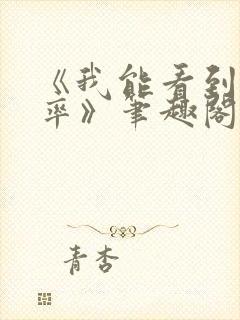 《我能看到
率》笔趣阁
青杏